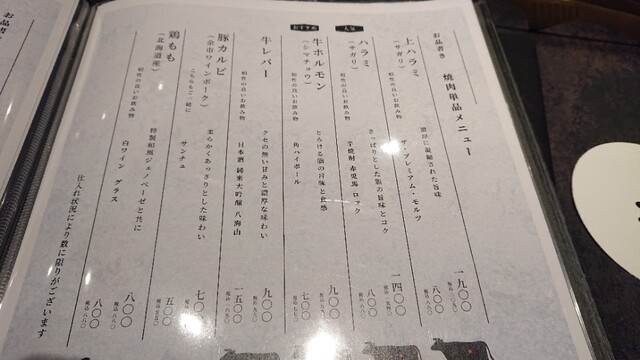 お品書き
焼肉単品メニュー
上ハラミ
(サガリ)
濃厚に凝縮された旨味
一九〇〇
相性の良いお飲み物
ザ・プレミアム・モルツ
八〇〇
税込 八八〇
人気
ハラミ
(サガリ)
さっぱりとした脂の旨味とコク
一四〇〇
相性の良いお飲み物
芋焼酎 赤兎馬 ロック
八〇〇
おすすめ
牛ホルモン
(シマチョウ)
とろける脂の旨味と食感
九〇〇
相性の良いお飲み物
角ハイボール
七〇〇
牛レバー
クセの無い甘みと濃厚な味わい
九〇〇
相性の良いお飲み物
日本酒 純米大吟醸 八海山
一五〇〇
豚カルビ
(余市ワインポーク)
柔らかくあっさりとした味わい
七〇〇
こちらもご一緒に
サンチュ
五〇〇
税込 五五〇
鶏もも
(北海道産)
特製和風ジェノベーゼと共に
八〇〇
税込 八八〇
相性の良いお飲み物
白ワイン グラス
八〇〇
税込 八八〇
仕入れ状況により数に限りがございます
お品書